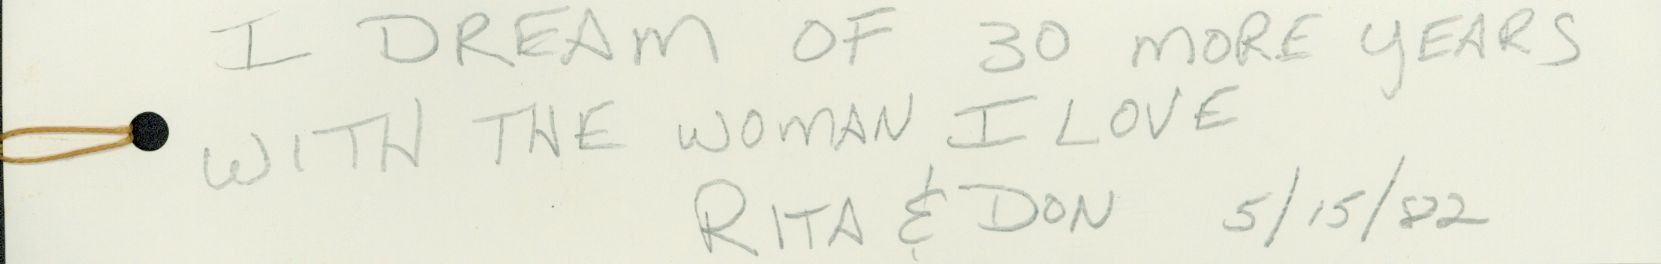 I DREAM OF 30 MORE YEARS
WITH THE WOMAN I LOVE
RITA & DON 5/15/82